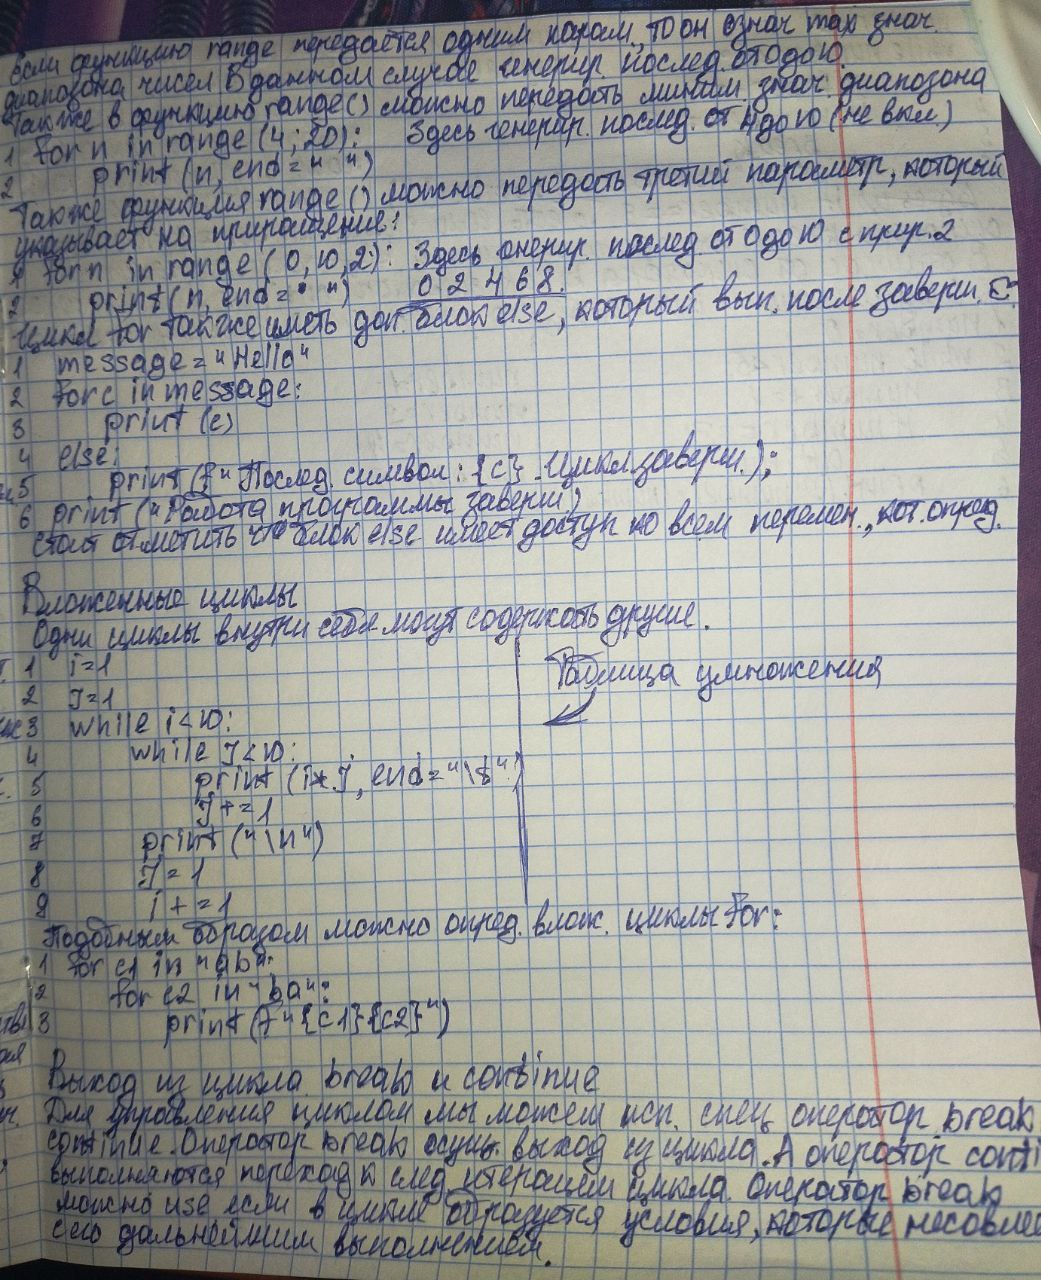 Если функцию range передаётся одним парам. то он означ max знач.
диапозона чисел В данном случае генерир. послед. от 0 до 10.
Также в функцию range() можно передать миним знач. диапозона
1 for n in range (4; 20): Здесь генерир. послед. от 4 до 10 (не вкл.)
2 print (n, end = " ")
Также функция range () можно передать третий параметр, который
указывает на приращение:
1 for n in range (0, 10, 2): Здесь генерир. послед. от 0 до 10 с прир. 2
2 print (n, end = " ") 0 2 4 6 8.
Цикл for также иметь доп. блок else, который вып. после заверш.
1 message = "Hello"
2 for c in message:
3 print (c)
4 else:
5 print (f" Послед. символ: {c}. Цикл заверш.);
6 print ("Работа программы заверш.)
стоит отметить что блок else имеет доступ ко всем перемен., кот. опред.
Вложенные циклы
Одни циклы внутри себя могут содержать другие.
1 i=1
2 J=1
Таблица умножения
3 while i<10:
4 while J<10:
5 print (i*J, end="\t")
6 J+=1
7 print ("\n")
8 J=1
9 i+=1
Подобным образом можно опред. влож. циклы for:
1 for c1 in "ab":
2 for c2 in "ba":
3 print (f"{c1}{c2}")
Выход из цикла break и continue
Для управления циклом мы можем исп. спец. оператор break
continue. Оператор break осущ. выход из цикла. А оператор conti
выполняются переход к след. итерацией цикла. Оператор break
можно use если в цикле образуется условия, которые несовмес
с его дальнейшим выполнением.